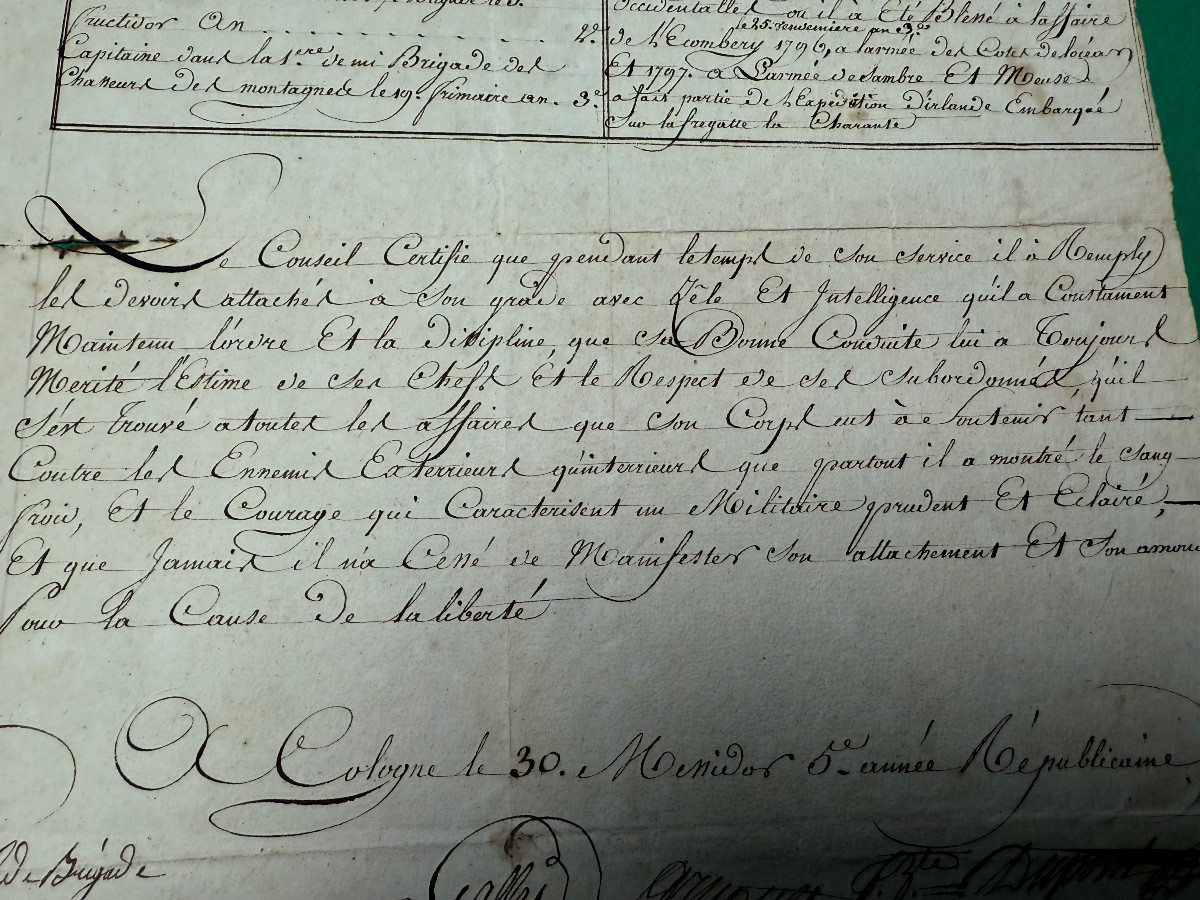 Fructidor An . . . . . . . . . . . . . 2.e
Capitaine dans la 1.ere demi Brigade des
Chasseurs des montagnes le 19. frimaire an. 3.e
occidentalles ou il à Eté Blessé à laffaire
le 25. vendemiaire an 3.e
de L'Ecombery 1796, a larmée des Cotes de loçean
Et 1797. a L'armée de Sambre Et Meuse
a fait partie de L'Expedition d'irlande Embarqué
Sur la fregatte la Charante
Le Conseil Certifie que pendant le temps de son service il à Remply
les devoirs attachés à son grade avec Zêle Et Intelligence qu'il a Constament
Maintenu l'ordre Et la disipline que sa Bonne Conduite lui a Toujours
Merité l'Estime de ses Chefs Et le Respect de ses subordonnés, qu'il
s'est trouvé a toutes les affaires que son Corps eut à e Soutenir tant
Contre les Ennemis Exterrieurs qu'interrieurs que partout il a montré le sang
froid, Et le Courage qui Caracterisent un Militaire prudent Et Eclairé,
Et que Jamais il n'a Cessé de Manifester son attachement Et son amour
Pour la Cause de la liberté
A Cologne le 30. Messidor 5.e année Républicaine
de Brigade
Dupont